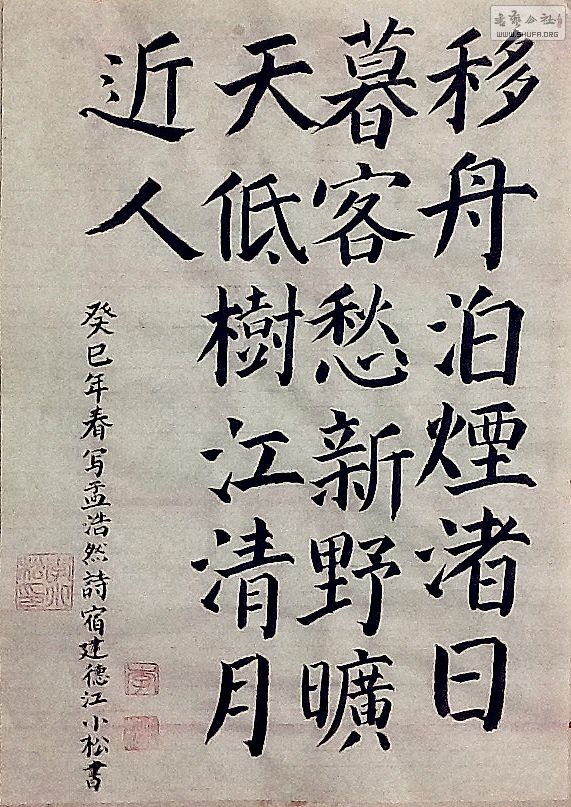 移舟泊煙渚日
暮客愁新野曠
天低樹江清月
近人
癸巳年春写孟浩然詩宿建德江小松書
WWW.SHUFA.ORG